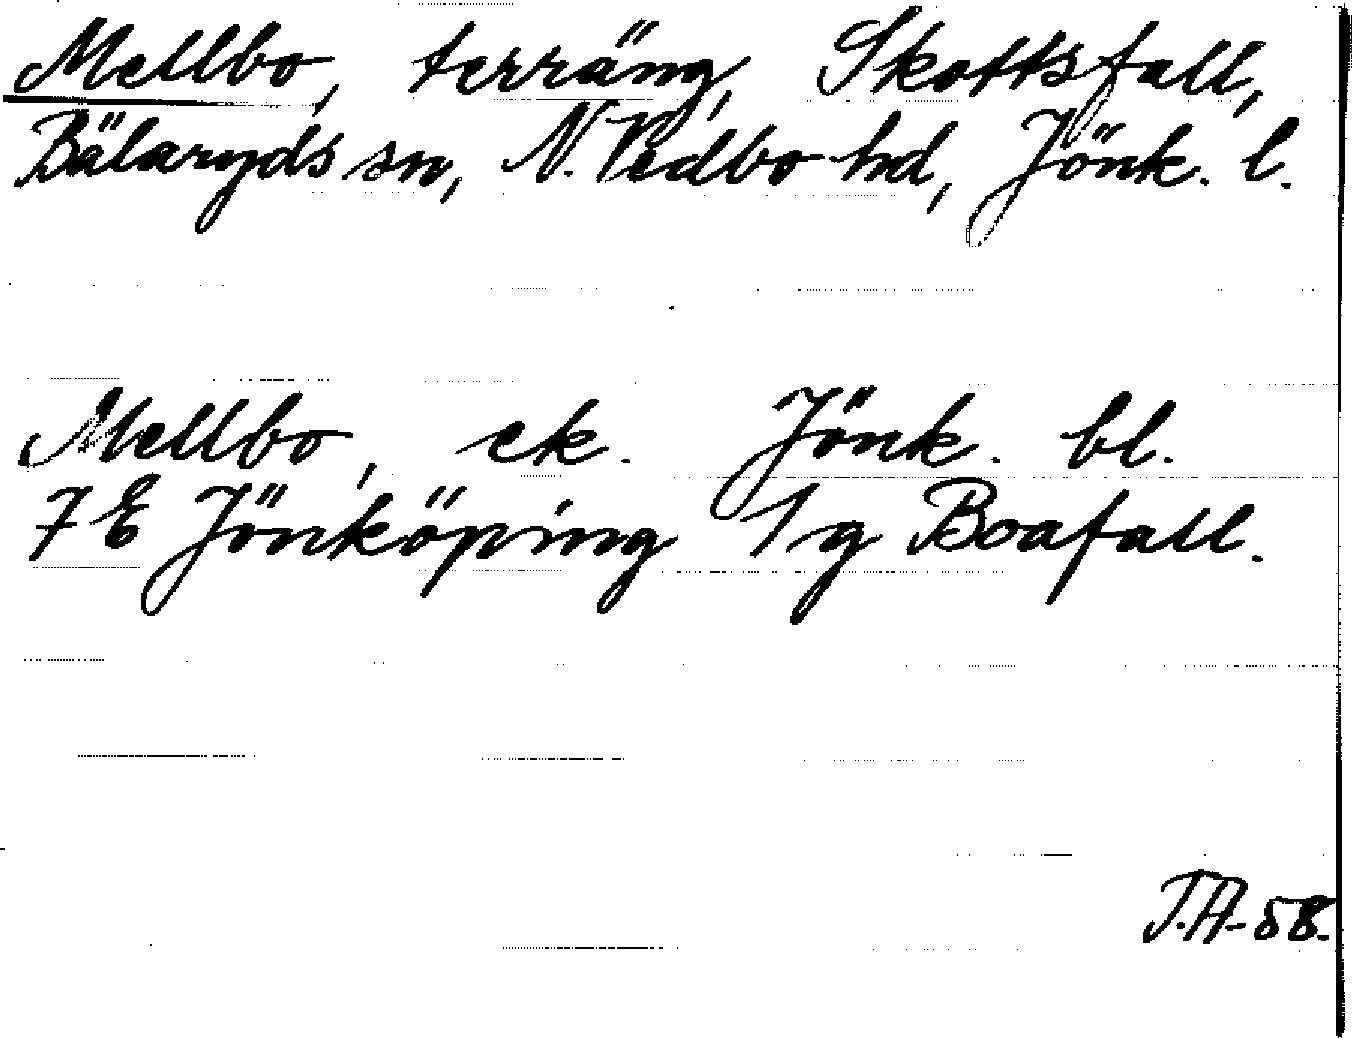 Mellbo, terräng, Skottsfall,
Bälaryds sn, N. Vedbo hd, Jönk. l.
Mellbo, ek. Jönk. bl.
7E Jönköping 1g Boafall.
T.A-58.